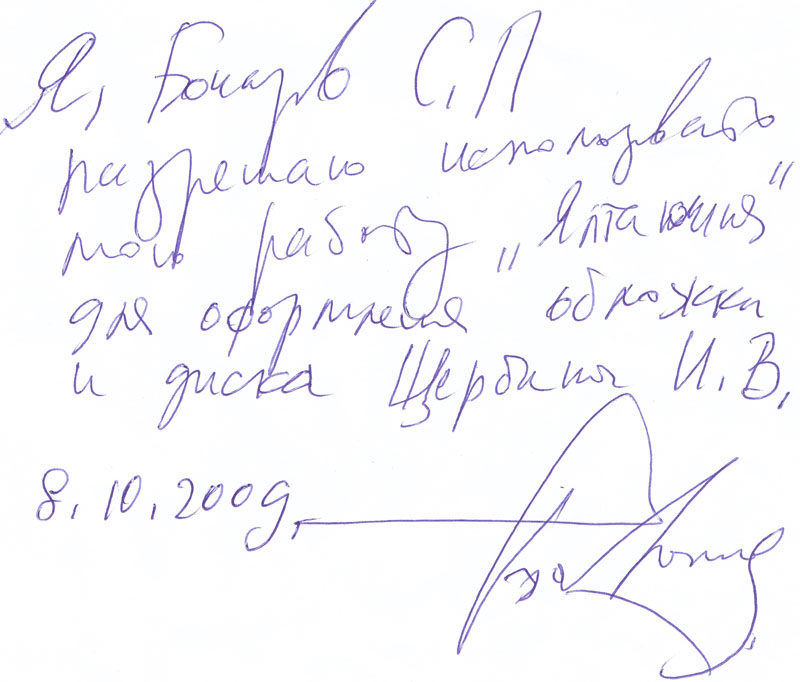 Я, Бочаров С.П
разрешаю использовать
мою работу
для оформления обложки
и диска Щербины И.В.
8.10.2009.